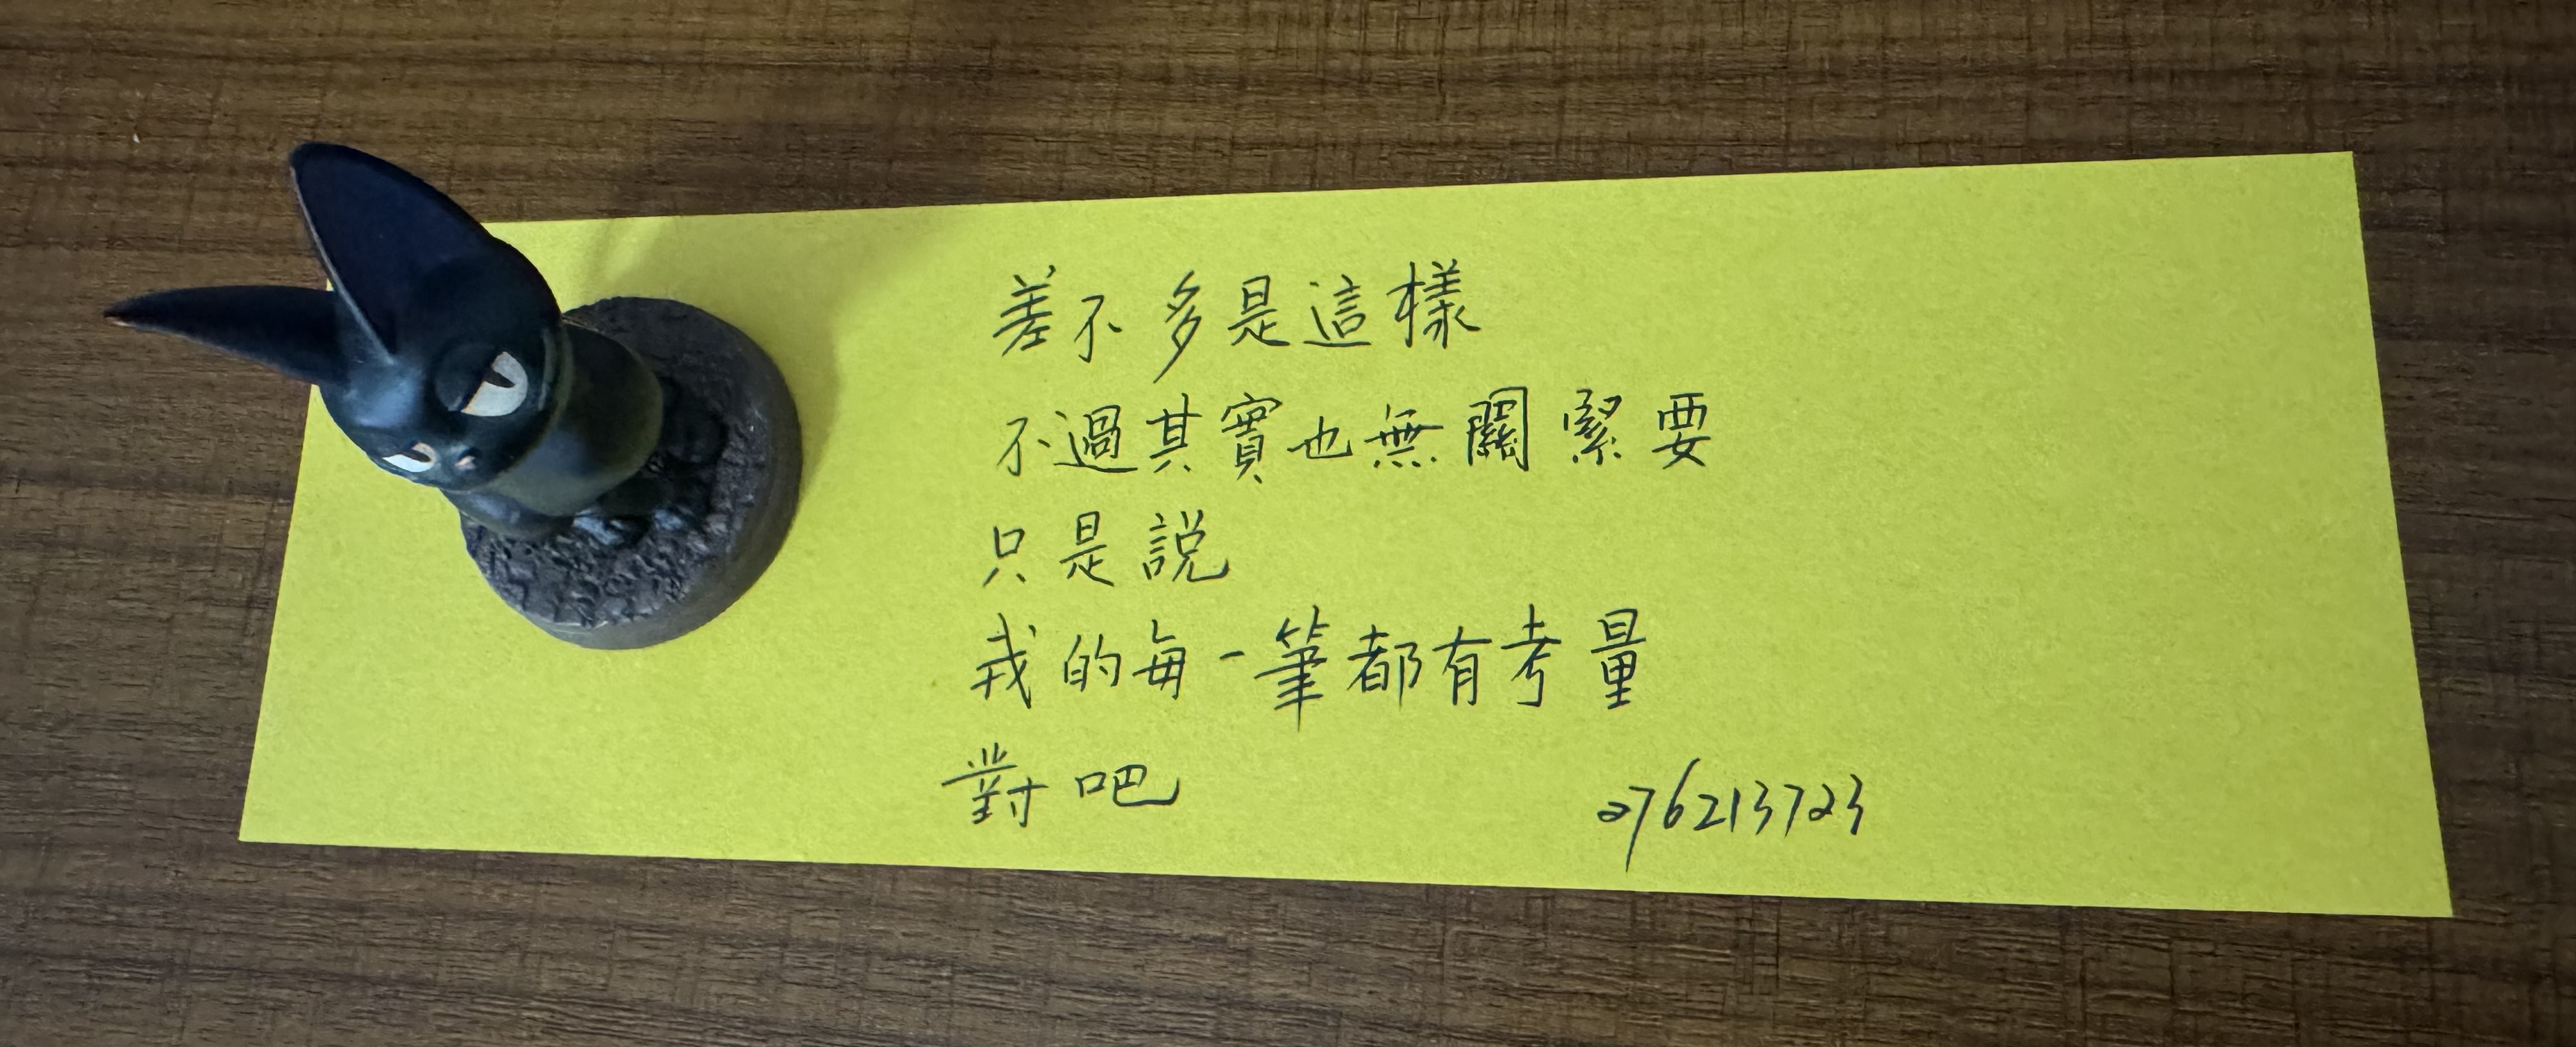 差不多是這樣
不過其實也無關緊要
只是說
我的每一筆都有考量
對吧
276213723